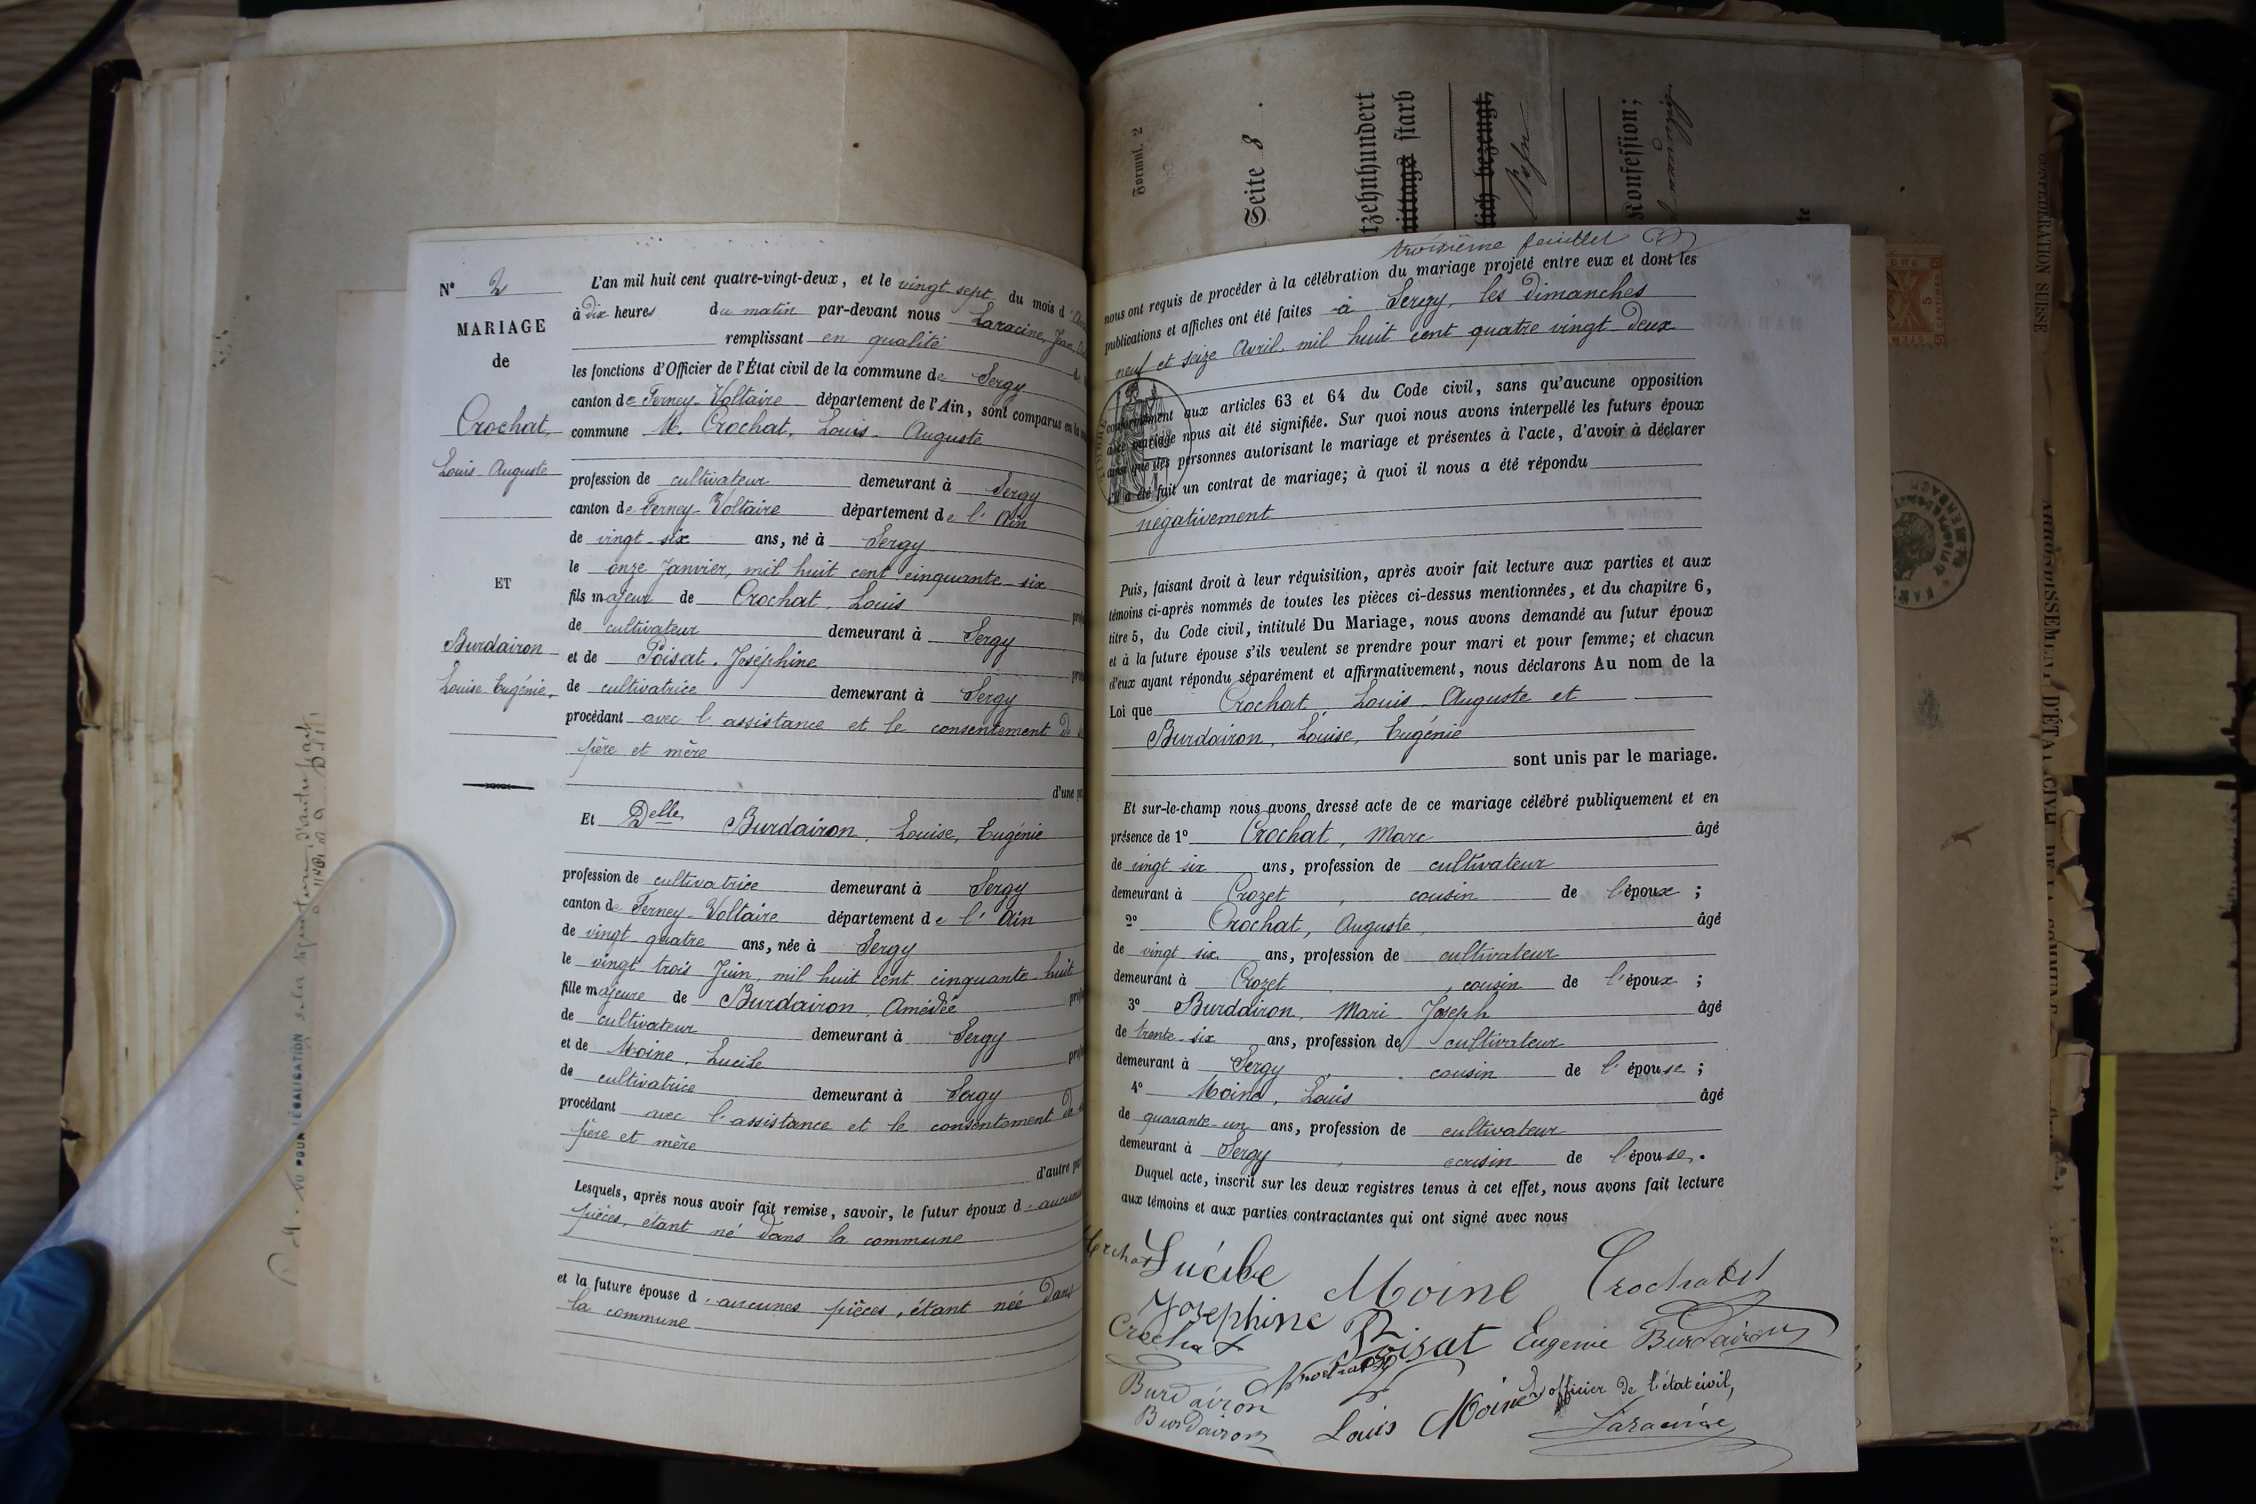 N° 2
MARIAGE
de
Crochat,
Louis Auguste
ET
Burdairon
Louise Eugénie,
L'an mil huit cent quatre-vingt-deux, et le vingt sept du mois d'
à dix heures du matin par-devant nous Laracine,
remplissant en qualité
les fonctions d'Officier de l'État civil de la commune de Sergy
canton de Ferney-Voltaire département de l'Ain, sont comparus en la
commune M. Crochat, Louis-Auguste
profession de cultivateur demeurant à Sergy
canton de Ferney-Voltaire département de l'Ain
de vingt-six ans, né à Sergy
le onze Janvier, mil huit cent cinquante-six
fils majeur de Crochat, Louis
de cultivateur demeurant à Sergy
et de Poisat, Joséphine
de cultivatrice demeurant à Sergy
procédant avec l'assistance et le consentement de
père et mère
d'une
Et Delle Burdairon, Louise, Eugénie
profession de cultivatrice demeurant à Sergy
canton de Ferney-Voltaire département de l'Ain
de vingt quatre ans, née à Sergy
le vingt trois Juin, mil huit cent cinquante-huit
fille majeure de Burdairon, Amédée
de cultivateur demeurant à Sergy
et de Moine, Lucile
de cultivatrice demeurant à Sergy
procédant avec l'assistance et le consentement de
père et mère
d'autre
Lesquels, après nous avoir fait remise, savoir, le futur époux d'
pièces, étant né dans la commune
et la future épouse d'aucunes pièces, étant née dans
la commune
VU POUR LÉGALISATION
Formul. 2
Seite 8
tzehnhundert
mittags starb
lich bezeugt,
Konfession;
troisième feuillet
nous ont requis de procéder à la célébration du mariage projeté entre eux et dont les
publications et affiches ont été faites à Sergy, les dimanches
neuf et seize Avril, mil huit cent quatre vingt-deux
conformément aux articles 63 et 64 du Code civil, sans qu'aucune opposition
audit mariage nous ait été signifiée. Sur quoi nous avons interpellé les futurs époux
ainsi que les personnes autorisant le mariage et présentes à l'acte, d'avoir à déclarer
s'il a été fait un contrat de mariage; à quoi il nous a été répondu
négativement
Puis, faisant droit à leur réquisition, après avoir fait lecture aux parties et aux
témoins ci-après nommés de toutes les pièces ci-dessus mentionnées, et du chapitre 6,
titre 5, du Code civil, intitulé Du Mariage, nous avons demandé au futur époux
et à la future épouse s'ils veulent se prendre pour mari et pour femme; et chacun
d'eux ayant répondu séparément et affirmativement, nous déclarons Au nom de la
Loi que Crochat, Louis-Auguste et
Burdairon, Louise, Eugénie
sont unis par le mariage.
Et sur-le-champ nous avons dressé acte de ce mariage célébré publiquement et en
présence de 1° Crochat, Marc âgé
de vingt six ans, profession de cultivateur
demeurant à Crozet, cousin de l'époux;
2° Crochat, Auguste, âgé
de vingt six ans, profession de cultivateur
demeurant à Crozet, cousin de l'époux;
3° Burdairon, Mari Joseph âgé
de trente-six ans, profession de cultivateur
demeurant à Sergy, cousin de l'épouse;
4° Moine, Louis âgé
de quarante-un ans, profession de cultivateur
demeurant à Sergy, cousin de l'épouse.
Duquel acte, inscrit sur les deux registres tenus à cet effet, nous avons fait lecture
aux témoins et aux parties contractantes qui ont signé avec nous
Lucile Moine Crochat
Josephine Poisat Eugenie Burdairon
Crochat
Burdairon
Burdairon
Louis Moine
L'officier de l'état civil,
Laracine
CONFÉDÉRATION SUISSE
ARRONDISSEMENT D'ÉTAT CIVIL DE LA COMMUNE